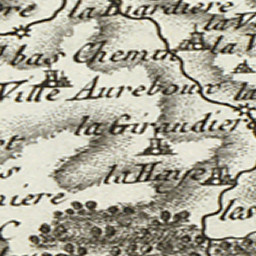 la Biardiere
bas Chemin
Ville Aureboux
la Giraudiere
la Haye
niere
las